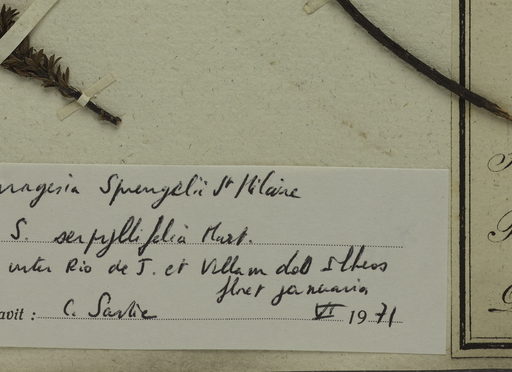 Sprengelii St Hilaire
S. serpyllifolia Mart.
inter Rio de J. et Villam dos Ilheos
floret januaria
avit : C. Sastre VI 1971